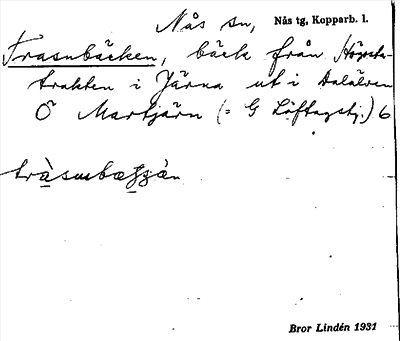 Nås sn, Nås tg, Kopparb. l.
Trasnbäcken, bäck från Högsta-
trakten i Järna ut i Dalälven
Ö Martjärn (= G Löftagstj.) 6
Bror Lindén 1931